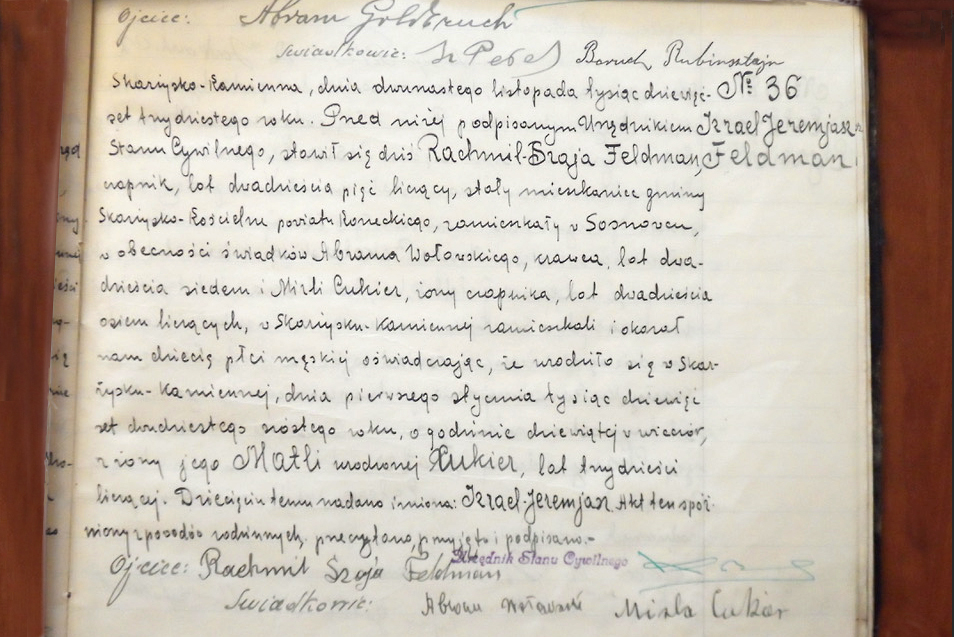 Ojciec: Abram Goldbruch
Świadkowie: Baruch Rubinsztajn
Skarżysko-Kamienna, dnia dwunastego listopada tysiąc dziewięć- № 36
set trzydziestego roku. Przed niżej podpisanym Urzędnikiem Izrael Jeremjasz
Stanu Cywilnego, stawił się dziś Rachmil-Szaja Feldman, Feldman
czapnik, lat dwadzieścia pięć liczący, stały mieszkaniec gminy
Skarżysko-Kościelne powiatu Koneckiego, zamieszkały w Sosnowcu,
w obecności świadków Abrama Wołowskiego, krawca, lat dwa-
dzieścia siedem i Mirli Cukier, żony czapnika, lat dwadzieścia
osiem liczących, w Skarżysku-Kamiennej zamieszkali i okazał
nam dziecię płci męskiej oświadczając, że urodziło się w Skar-
żysku-Kamiennej, dnia pierwszego stycznia tysiąc dziewięć
set dwudziestego szóstego roku, o godzinie dziewiątej wieczór,
z żony jego Matli urodzonej Cukier, lat trzydzieści
liczącej. Dziecięciu temu nadano imiona: Izrael-Jeremjasz. Akt ten spóź-
niony z powodów rodzinnych, przeczytano, przyjęto i podpisano.-
Ojciec: Rachmil Szaja Feldman Urzędnik Stanu Cywilnego
Świadkowie: Abram Wołowski Mirla Cukier